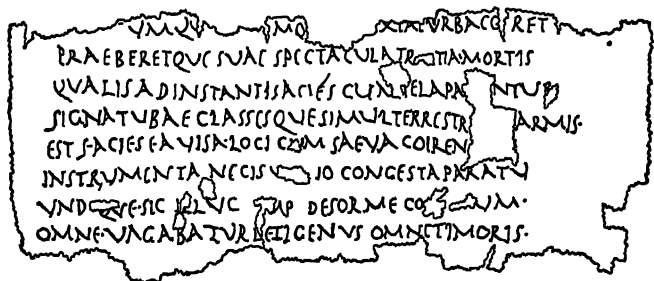 UMQV MQ XIATVRBACO RET
PRAEBERETQVESVAESPECTACVLATR TIA·MORTIS
QVALISADINSTANTISACIESCVMTELAPA NTVR
SIGNATVBAECLASSESQVESIMVLTERRESTR ARMIS·
ESTFACIESEAVISA·LOCICVMSAEVACOIREN
INSTRVMENTANECISV IOCONGESTAPARATV
VND QVE·SIC ILLVC MP DEFORMECO VM·
OMNE·VAGABATVRLETIGENVSOMNETIMORIS·